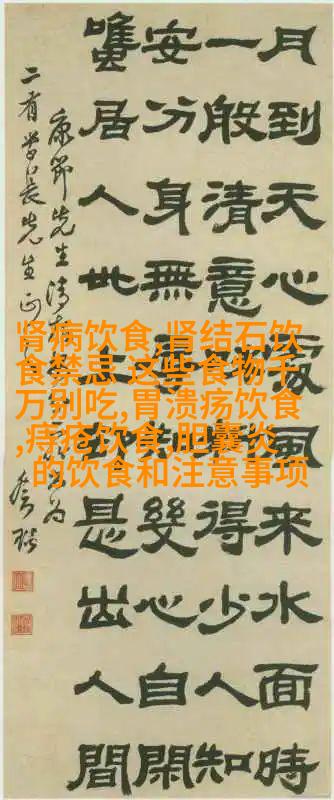 月到天心處風來水面時
一般清意味料得少人知
安分身無辱知幾心自閑
雖居人世上却是出人間
康節先生清
二有學長先生正
肾病饮食,肾结石饮
食禁忌 这些食物千
万别吃,胃溃疡饮食
,痔疮饮食,胆囊炎
的饮食和注意事项